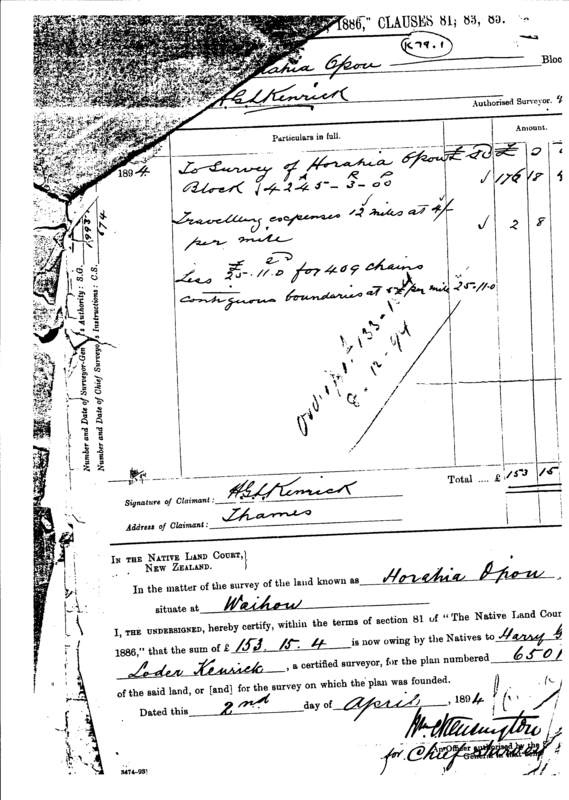 1886," CLAUSES 81; 83, 85.
K79.1
Horahia Opou Bloc
H.G.L. Kenrick
Authorised Surveyor.
Particulars in full. Amount.
1894 To Survey of Horahia Opou £ s D £ D
A R P
Block 4245-3-00 √ 176 18
Travelling expenses 12 miles at 4/- √ 2 8
per mile
Less £25.11.0 for 409 chains
contiguous boundaries at 5£ per mile 25.11.0
8-12-94
Number and Date of Surveyor-Gen s Authority : S.G.
Number and Date of Chief Surveyor s Instructions : C.S. 674
Total .... £ 153 15
Signature of Claimant : H.G.L. Kenrick
Address of Claimant : Thames
IN THE NATIVE LAND COURT,
NEW ZEALAND.
In the matter of the survey of the land known as Horahia Opou
situate at Waihou
I, THE UNDERSIGNED, hereby certify, within the terms of section 81 of "The Native Land Cour
1886," that the sum of £ 153. 15. 4 is now owing by the Natives to Harry G
Loder Kenrick, a certified surveyor, for the plan numbered 6501
of the said land, or [and] for the survey on which the plan was founded.
Dated this 2nd day of April, 1894
for Chief Surveyor
An Officer authorised by the
3474-93